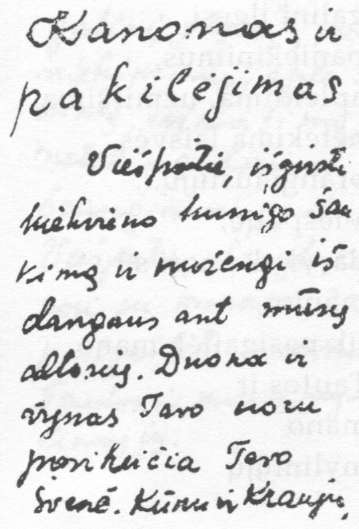 Kanonas ir
pakilėjimas
Viešpatie, išgirsti
kiekvieno kunigo šau
kimą ir nužengi iš
dangaus ant mūsų
altorių. Duona ir
vynas Tavo noru
pasikeičia Tavo
švenč. Kūnu ir Krauju,